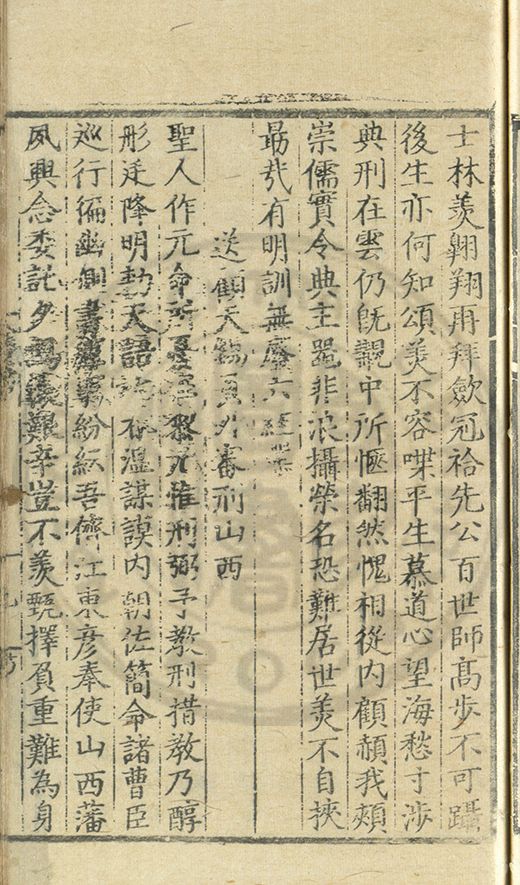 士林羡翱翔再拜歛冠袷先公百世師髙歩不可躡
後生亦何知頌羙不容喋平生慕道心望海愁寸渉
典刑在雲仍旣覿中所愜翻然愧相從内顧頳我頰
崇儒實令典主噐非浪攝榮名恐難居世羙不自挾
勗㢤有明訓無廢六經業
送顧天錫員外審刑山西
聖人作元命惟刑弼予教刑措教乃醇
彤廷降明勅天語温謀謨内朝佐簡命諸曹臣
巡行徧幽紛紜吾儕江東彦奉使山西藩
夙興念委託夕艱辛豈不羡甄擇負重難為身